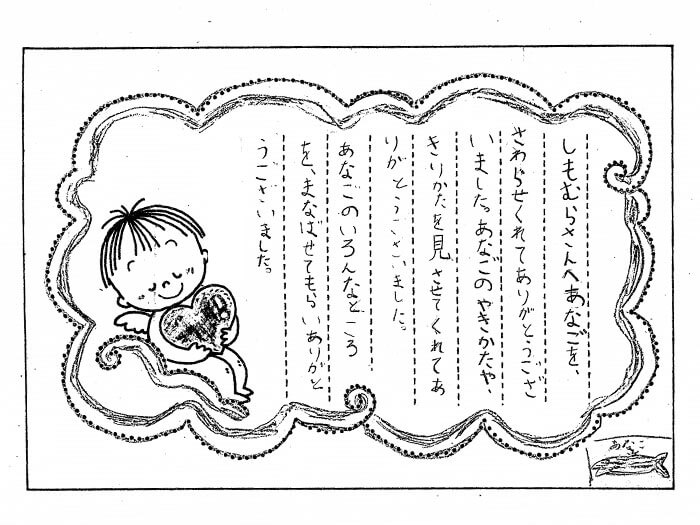 しもむらさんへあなごを、
さわらせくれてありがとうござ
いました。あなごのやきかたや、
きりかたを見させてくれてあ
りがとうございました。
あなごのいろんなところ
を、まなばせてもらいありがと
うございました。
あなご